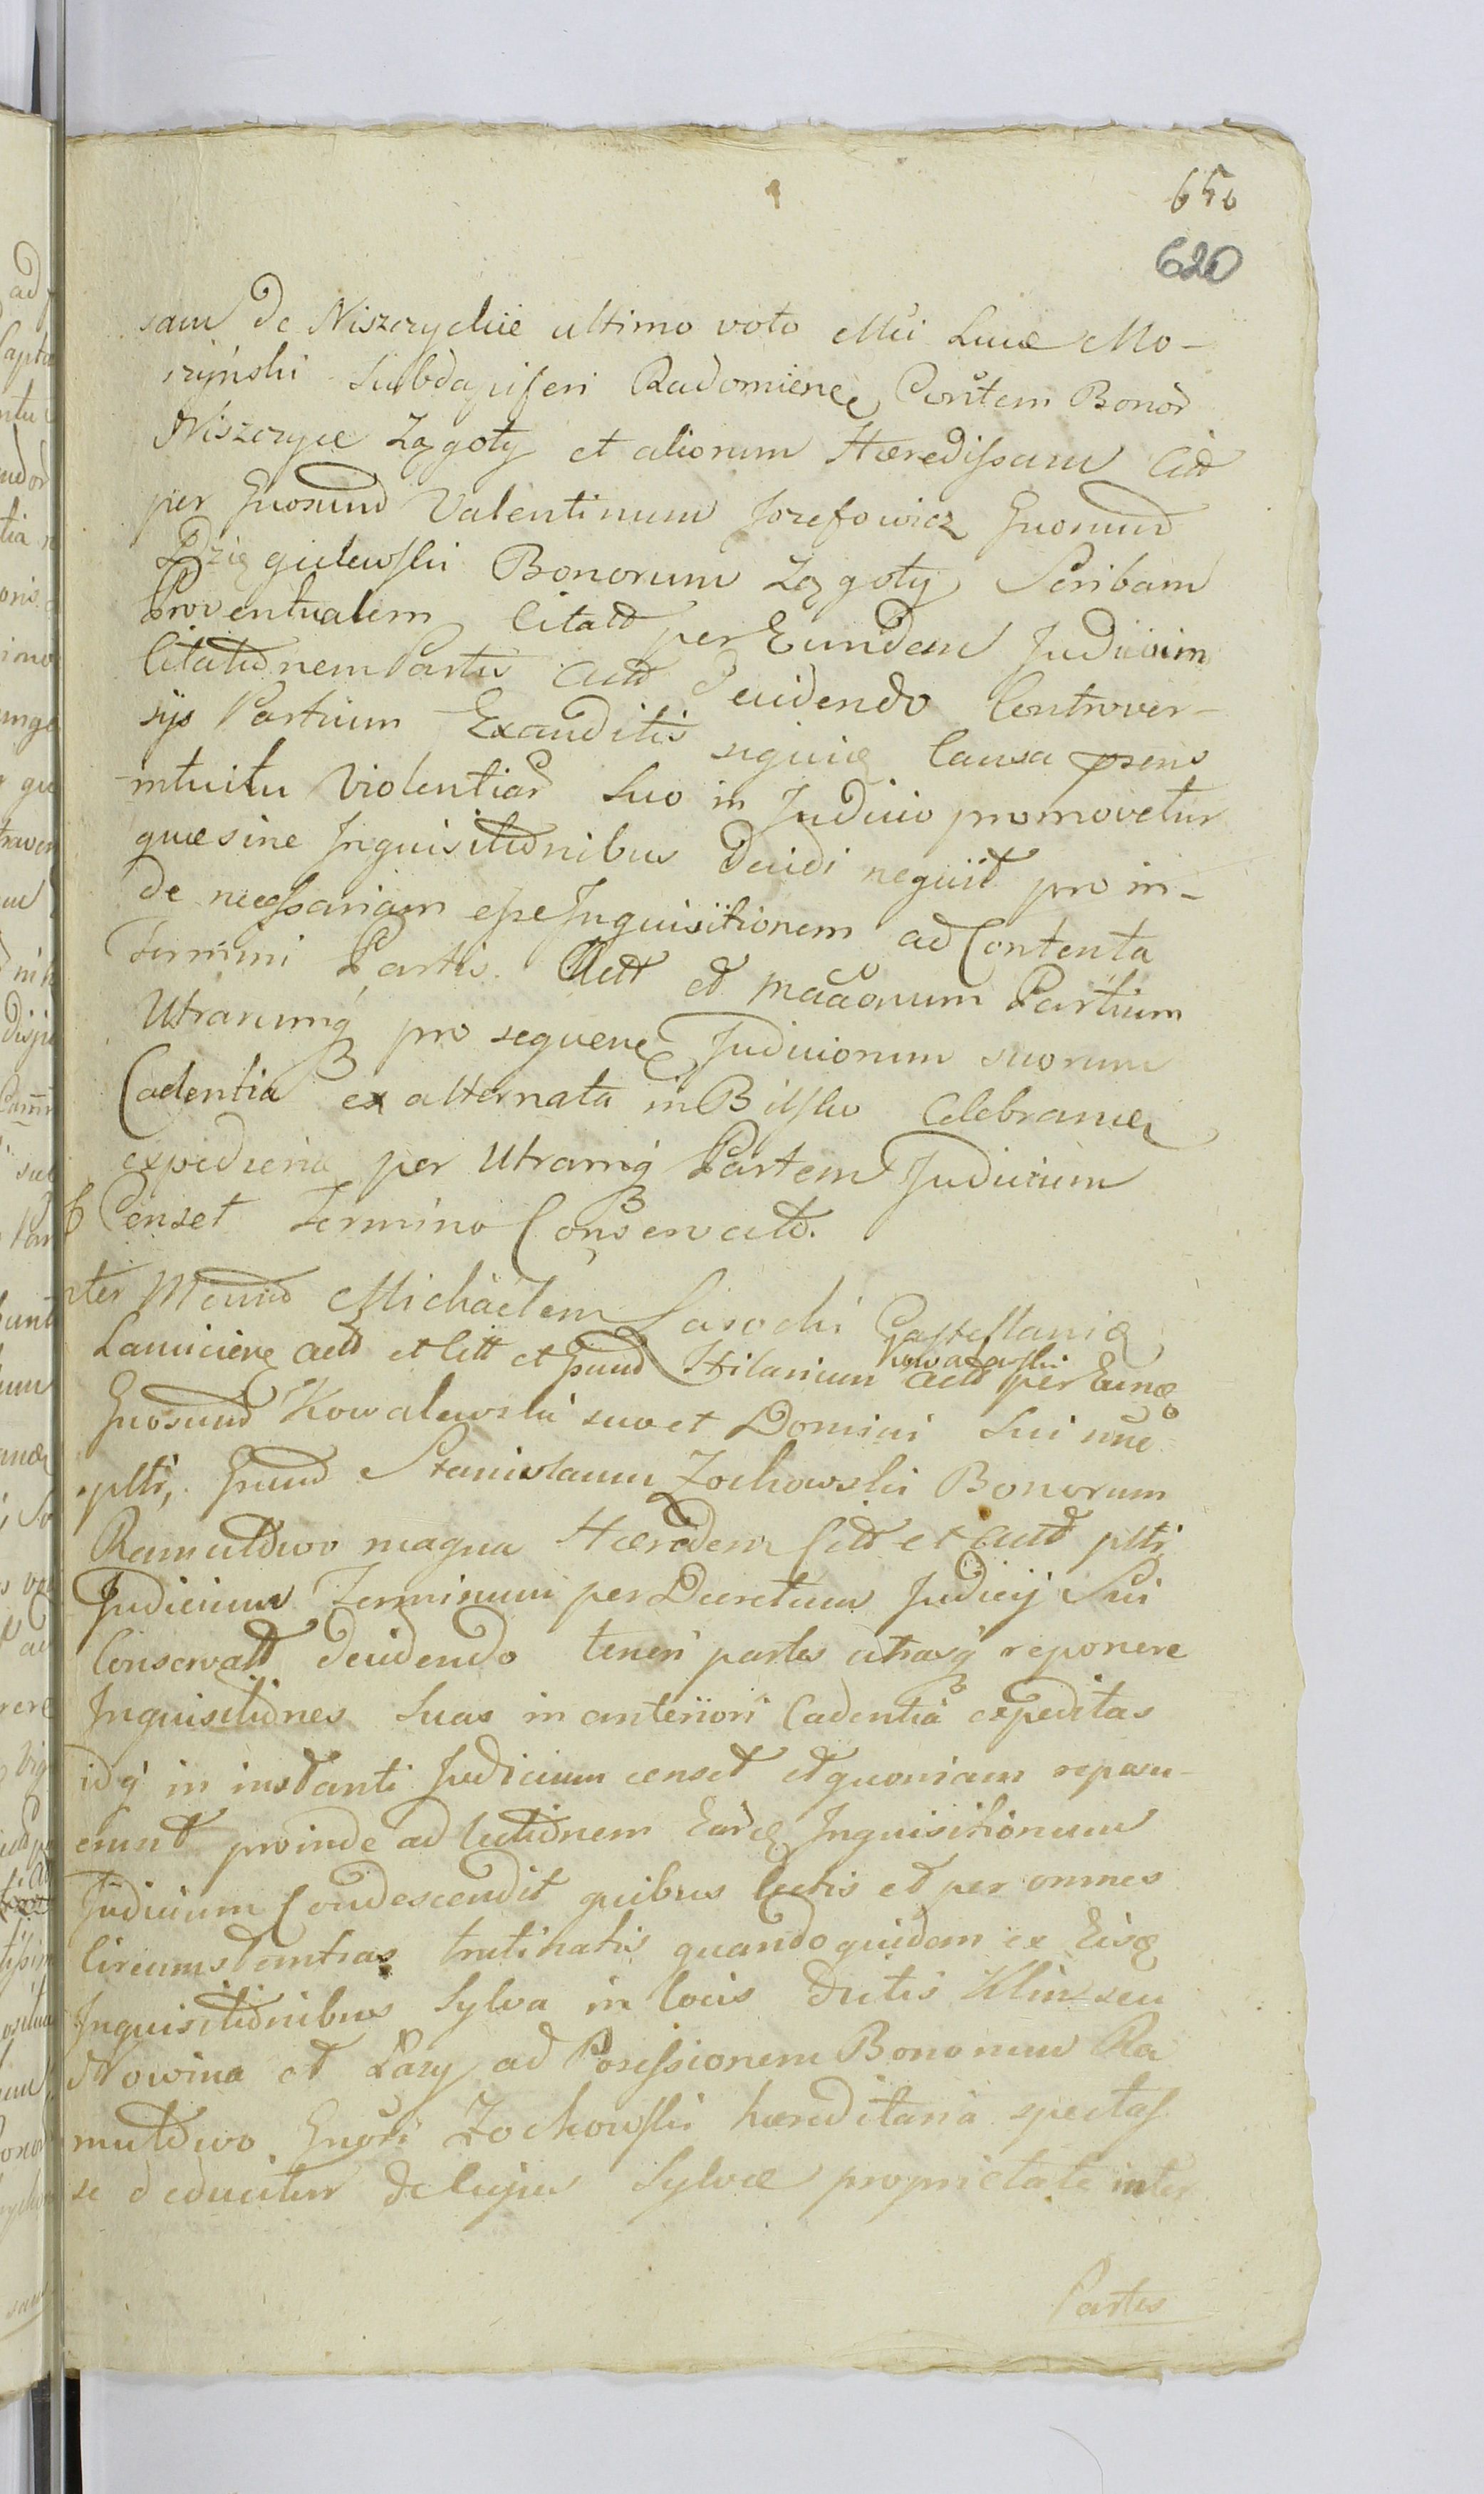 650
620
sam de Niszczyckie ultimo voto Mci Lucæ Mo-
szyński Subdapiferi Radomiensę Cons̃tem Bonor̃
Niszczyce Zągoty et aliorum Hæredissam Citt̃
per Gnosund̃ Valentinum Jozefowicz Gnorund̃
Dzięgielewski Bonorum Zągoty Scribam
Proventualem Citatt̃ per Eundem Judicium
Citationem Partis Actt̃ Decidendo Controver-
sijs Partium Exauditis siquidę Causa pręns
intuitu Violentiar̃ suo in Judicio promovetur
quæ sine Inquisitionibus decidi nequit pro in-
de necessariam esse Inquisitionem ad Contenta
Termini Partis Actt̃ et mac̃onum Partium
Utrarumq́ pro sequenę Judiciorum suorum
Cadentia ex alternata in Bilsko Celebranę
expedienę per Utramq́ Partem Judicium
Censet Termino Conservato.
Inter Mcund̃ Michaëlem Lasocki Castellanię
Kowalewski
Laniciens̃ Actt̃ et Citt̃ et Gnund̃ Hilarium Actt̃ per Eunę
Gnosund̃ Kowalewski suo et Domini Sui nñe
pltr̃, Gnund̃ Stanislaum Żochowski Bonorum
Ramutowo magna Hæredem Citt̃ et Actt̃ pltr̃
Judicium Terminum per Decretum Judicij Sui
Conservatt̃ decidendo teneri partes utrasq́ reponere
Inquisitiones suas in anteriori Cadentia expeditas
idq́ in instanti Judicium censet et quoniam reposu-
erunt proinde ad lectionem Earũę Inquisitionum
Judicium Condescendit quibus lectis et per omnes
Circumstantias trutinatis quandoquidem ex Eisę
Inquisitionibus Sylva in locis dictis Klin seu
Nowina et Łazy ad Possessionem Bonorum Ra
mutowo Gnosi Żochowski hæreditaria spectas
se deducitur de cujus Sylvæ proprietate inter
Partes